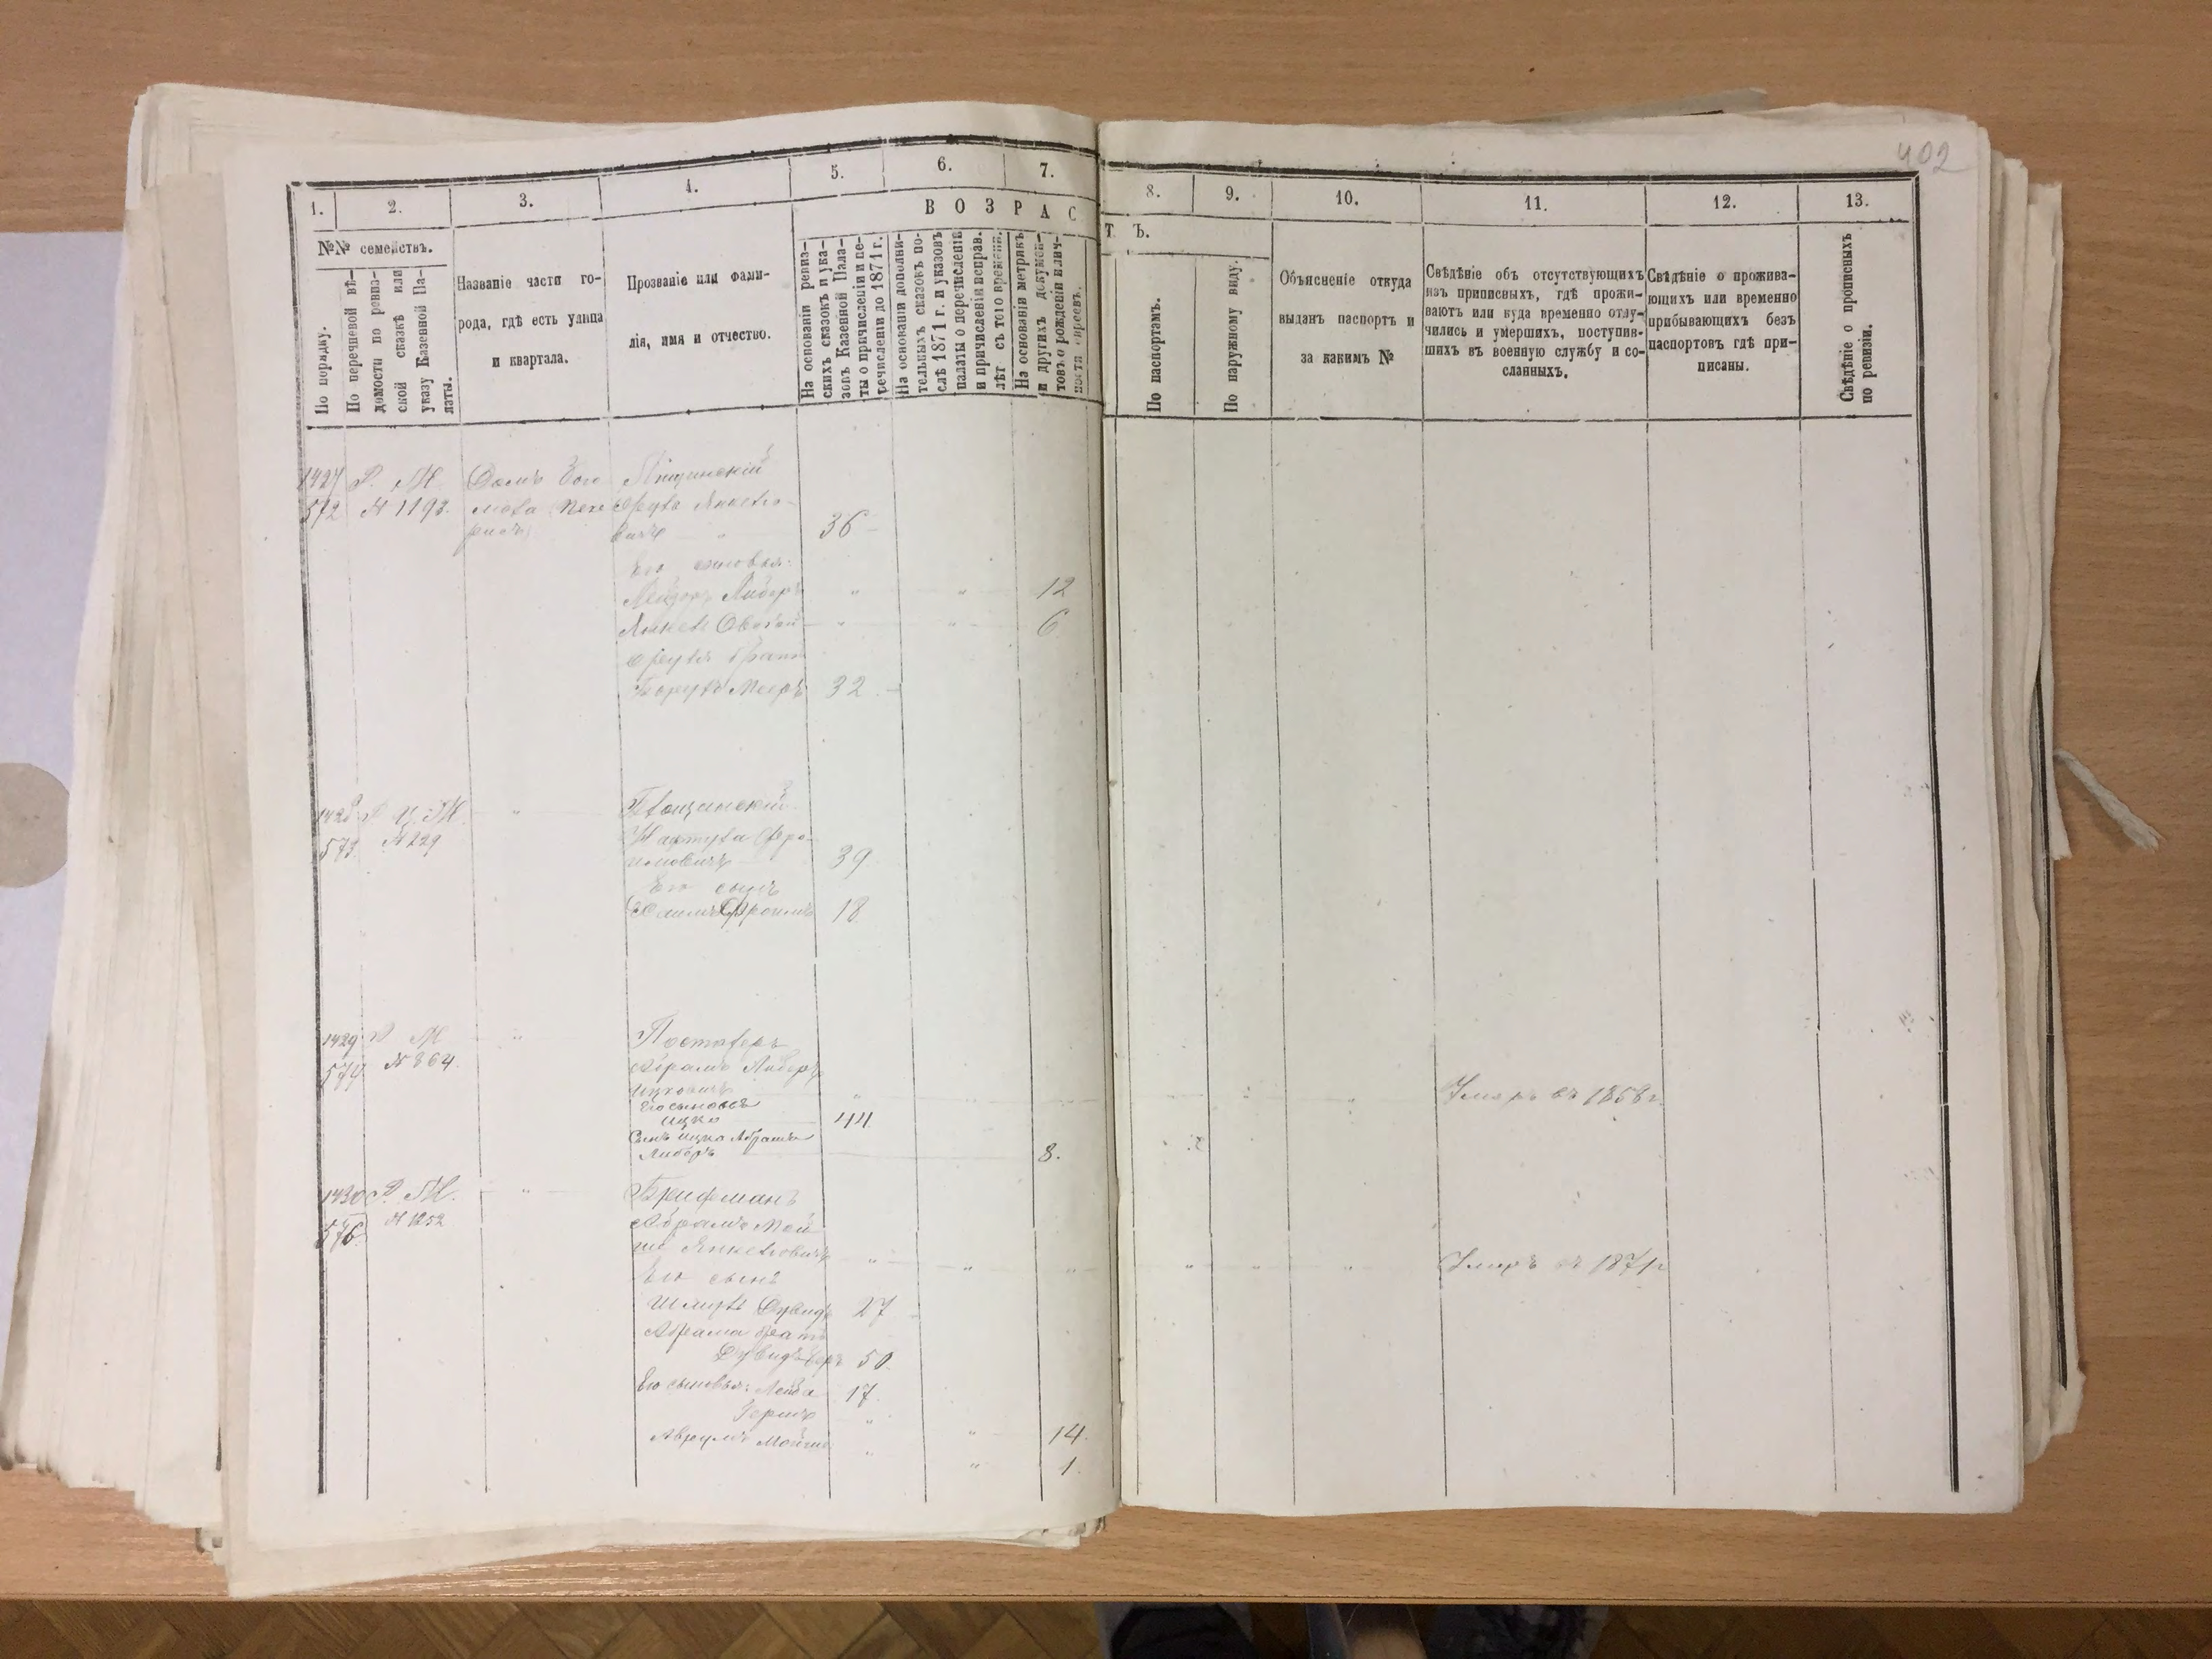 402
1.
2.
3.
4.
5.
6.
7.
8.
9.
10.
11.
12.
13.
ВОЗРАСТЪ.
№№ семействъ.
По порядку.
По перечневой вѣ-
домости по ревиз-
ской сказкѣ или
указу Казенной Па-
латы.
Названіе части го-
рода, гдѣ есть улица
и квартала.
Прозваніе или фами-
лія, имя и отчество.
На основаніи ревиз-
скихъ сказокъ и ука-
зовъ Казенной Пала-
ты о причисленіи и пе-
речисленіи до 1871 г.
На основаніи дополни-
тельныхъ сказокъ по-
слѣ 1871 г. и указовъ
палаты о перечисленіи
и причисленіи исправ.
лѣт съ того времени.
На основаніи метрикъ
и другихъ докумен-
товъ о рожденіи и лич-
ности евреевъ.
По паспортамъ.
По наружному виду.
Объясненіе откуда
выданъ паспортъ и
за какимъ №
Свѣдѣніе объ отсутствующихъ
изъ приписныхъ, гдѣ прожи-
ваютъ или куда временно отлу-
чились и умершихъ, поступив-
шихъ въ военную службу и со-
сланныхъ.
Свѣдѣніе о прожива-
ющихъ или временно
прибывающихъ безъ
паспортовъ гдѣ при-
писаны.
Свѣдѣніе о прописныхъ
по ревизіи.
1427 Р. М. Домъ
572 № 1193.
вичъ " 36
Его сыновья:
Либеръ " " 12
Янкев " " 6
братъ
Мееръ 32
1428 М. "
573 № 229
39
Его сынъ
Фроимъ 18
1429 Р М "
574 № 864.
Абрамъ Либеръ
Ицковичъ " " " Умеръ въ 1858 г.
Его сыновья
Ицко 44
Сынъ Ицка Абрамъ
Либеръ 8.
1430 Р. М. " Брифманъ
576. № 1252 Абрамъ Мой
ше Янкелевичъ " " " " " " Умеръ въ 1871 г
Его сынъ
Шмуль Дувидъ 27
Абрама братъ
Дувидъ Беръ 50
Его сыновья: Лейба 17.
Герш " " 14.
Аврумъ Мойше " " 1.